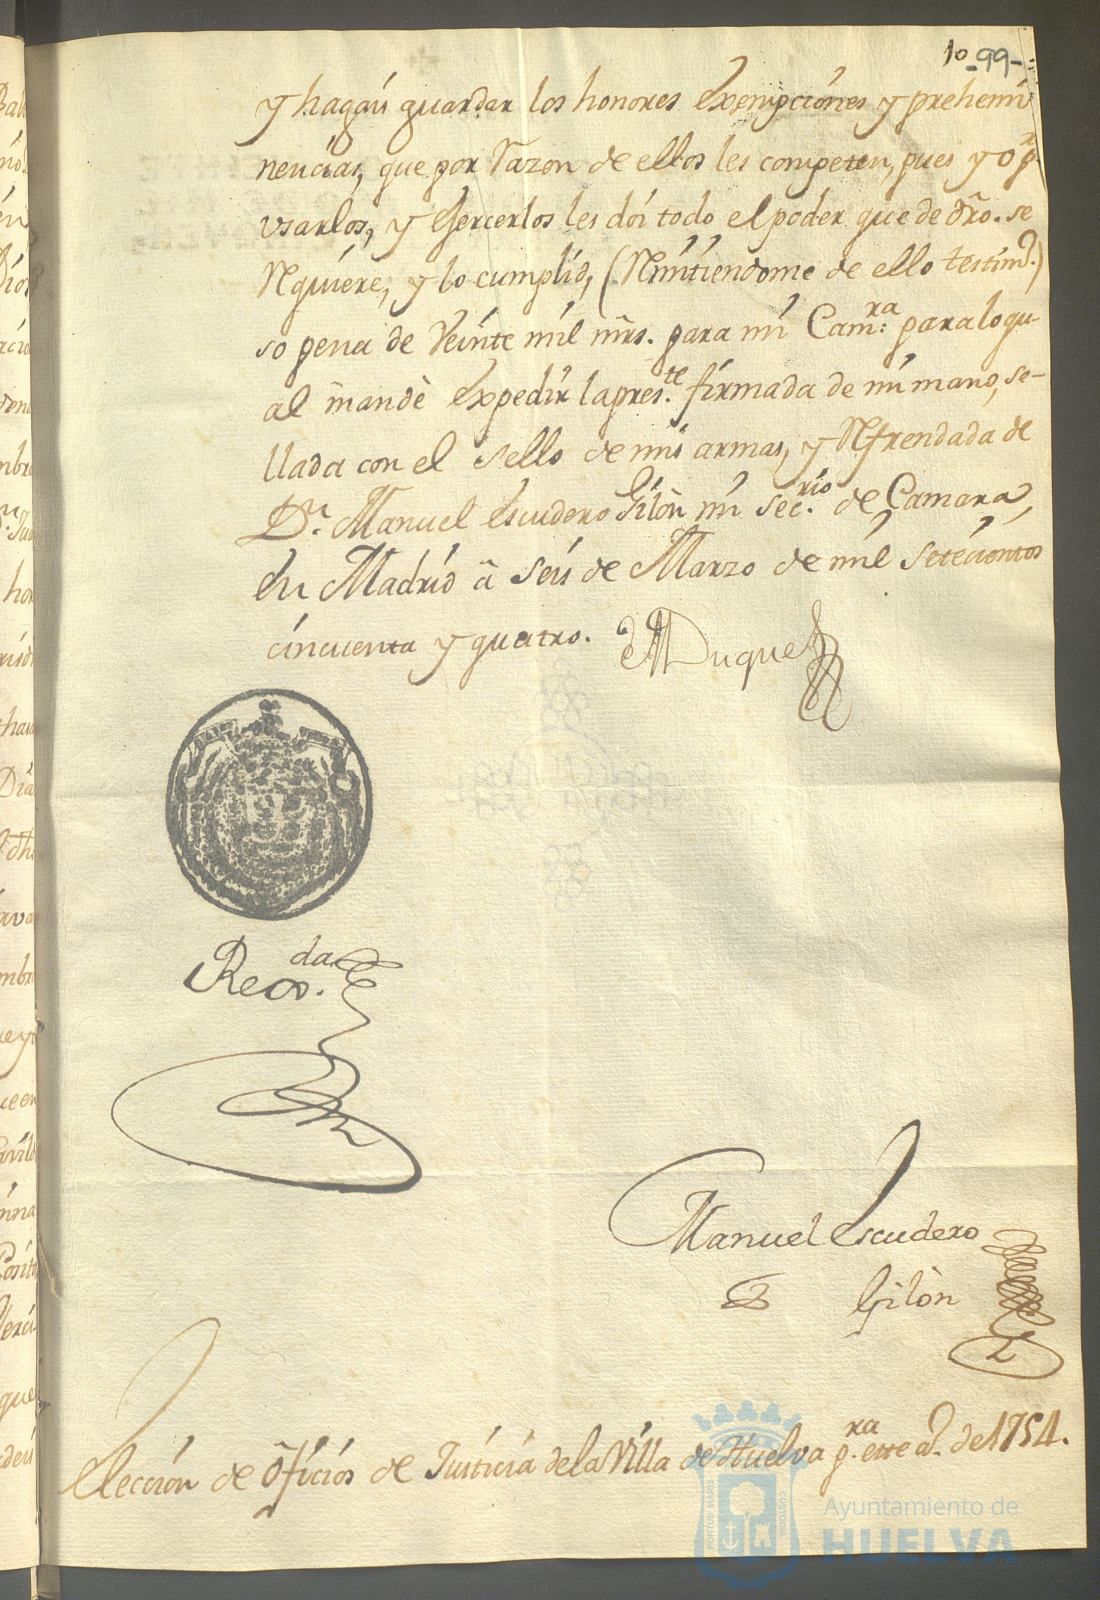 10 -99-
y hagan guardar los honores Exempciones y prehemi
nencias, que por razon de ellos les competen, pues yo pr.
vsarlos, y Exercerlos les doi todo el poder que de dro. se
requiere, y lo cumplid, (remitiendome de ello testimo.)
so pena de Veinte mil mrs. para mi Camra. para lo qu
al mandè Expedir la preste. firmada de mi mano, se-
llada con el sello de mis armas, y refrendada de
Dn. Manuel Escudero Gilòn mi secrio. de Camara
En Madrid à seis de Marzo de mil setecientos
cinquenta y quatro.
el Duque
Regda.
Manuel Escudero
Gilòn
Elección de oficios de Justicia de la Villa de Huelva pra. este ao. de 1754.
PORTUS MARIS
CUSTODIA
Ayuntamiento de
HUELVA